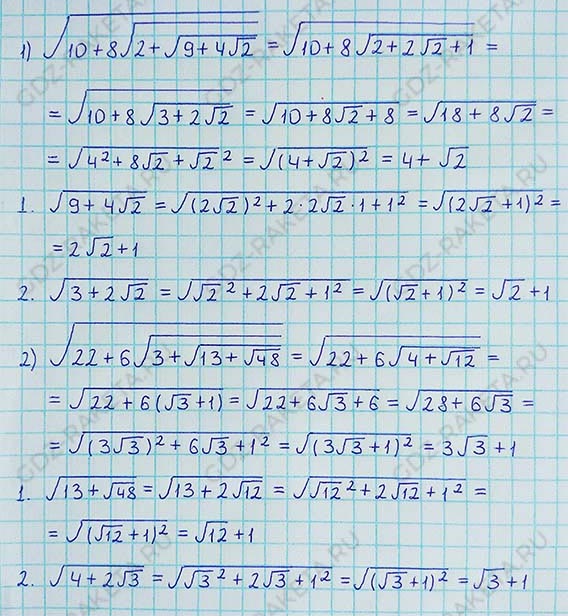 1) √(10+8√(2+√(9+4√2))) = √(10+8√(2+2√2+1)) =
= √(10+8√(3+2√2)) = √(10+8√2+8) = √(18+8√2) =
= √(4²+8√2+√2²) = √((4+√2)²) = 4+√2
1. √(9+4√2) = √((2√2)²+2·2√2·1+1²) = √((2√2+1)²) =
= 2√2+1
2. √(3+2√2) = √(√2²+2√2+1²) = √((√2+1)²) = √2+1
2) √(22+6√(3+√(13+√48))) = √(22+6√(4+√12)) =
= √(22+6(√3+1)) = √(22+6√3+6) = √(28+6√3) =
= √((3√3)²+6√3+1²) = √((3√3+1)²) = 3√3+1
1. √(13+√48) = √(13+2√12) = √(√12²+2√12+1²) =
= √((√12+1)²) = √12+1
2. √(4+2√3) = √(√3²+2√3+1²) = √((√3+1)²) = √3+1
GDZ-RAKETA.RU